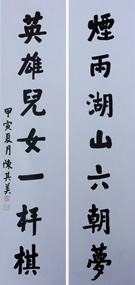 煙雨湖山六朝夢
英雄兒女一枰棋
甲寅夏月陳其美